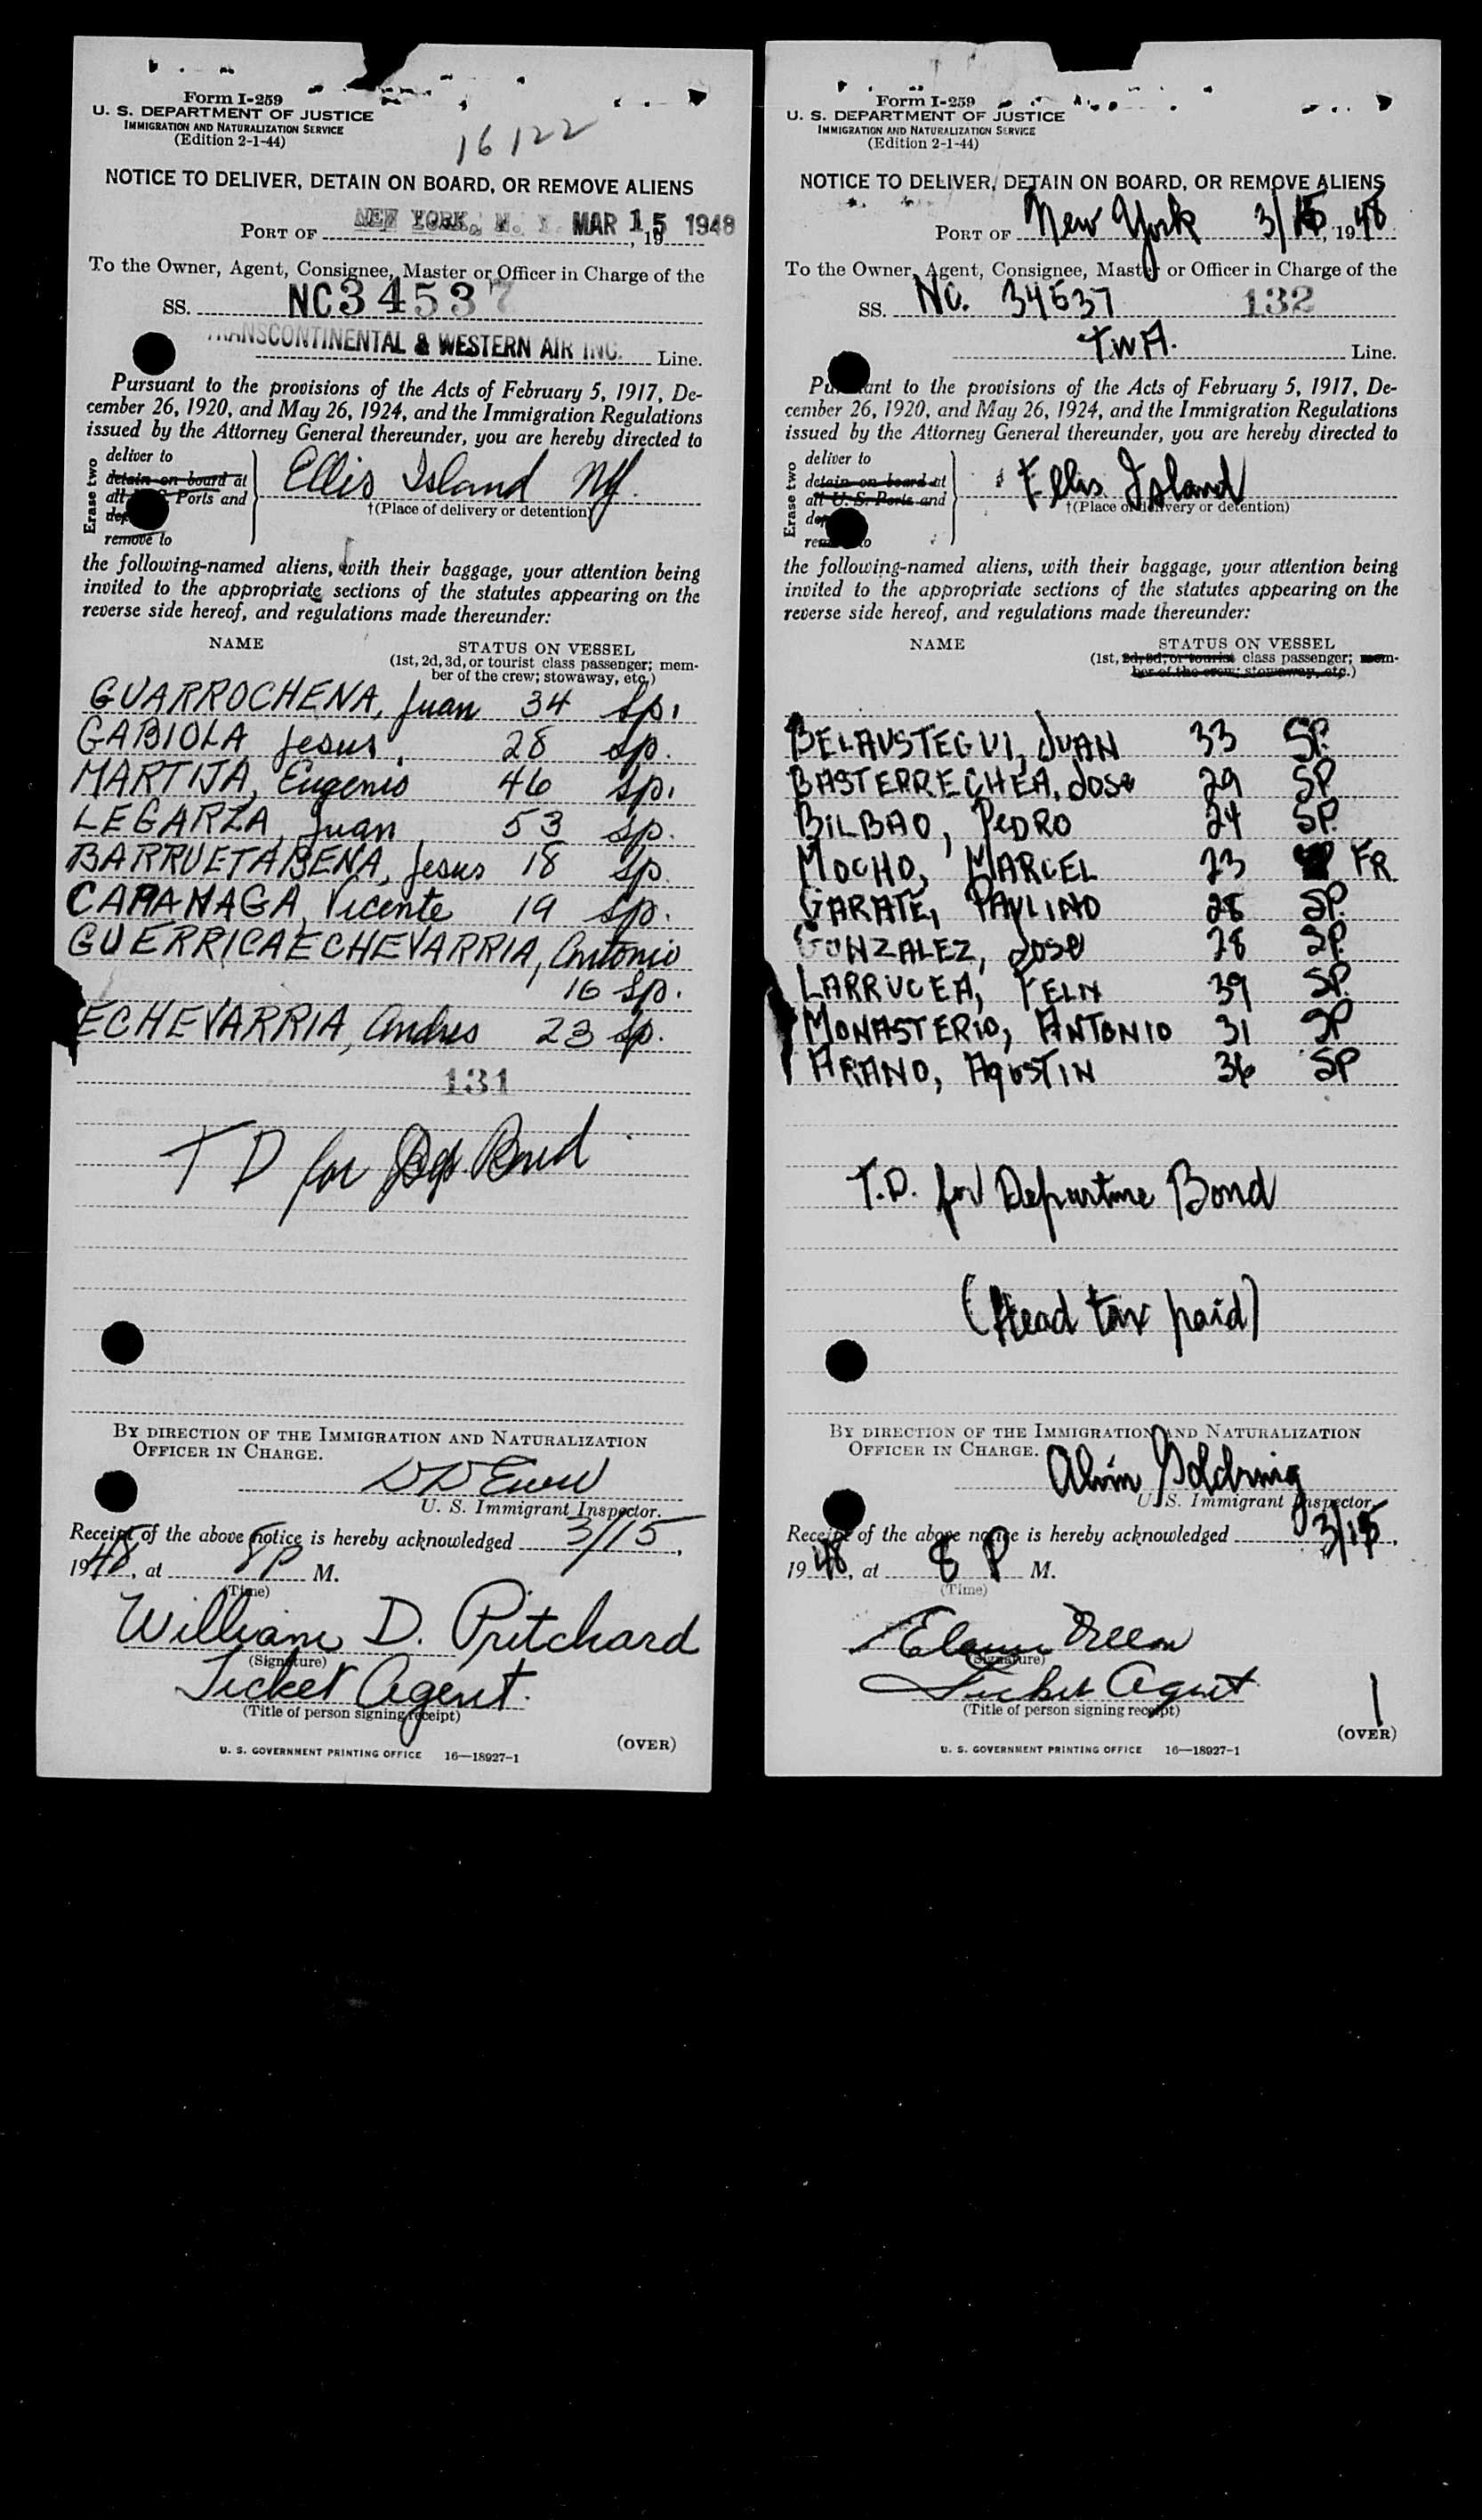 Form I-259
U. S. DEPARTMENT OF JUSTICE
IMMIGRATION AND NATURALIZATION SERVICE
(Edition 2-1-44)
16122
NOTICE TO DELIVER, DETAIN ON BOARD, OR REMOVE ALIENS
PORT OF NEW YORK, N. Y. MAR 15 1948, 19
To the Owner, Agent, Consignee, Master or Officer in Charge of the
SS. NC34537
TRANSCONTINENTAL & WESTERN AIR INC. Line.
Pursuant to the provisions of the Acts of February 5, 1917, De-
cember 26, 1920, and May 26, 1924, and the Immigration Regulations
issued by the Attorney General thereunder, you are hereby directed to
Erase two
deliver to
detain on board at
all Ports and
remove to
Ellis Island NY.
†(Place of delivery or detention)
the following-named aliens, with their baggage, your attention being
invited to the appropriate sections of the statutes appearing on the
reverse side hereof, and regulations made thereunder:
NAME STATUS ON VESSEL
(1st, 2d, 3d, or tourist class passenger; mem-
ber of the crew; stowaway, etc.)
GUARROCHENA, Juan 34 Sp.
GABIOLA Jesus. 28 Sp.
MARTIJA, Eugenio 46 Sp.
LEGARZA, Juan 53 Sp.
BARRUETABENA, Jesus 18 Sp.
CARAMAGA, Vicente 19 Sp.
GUERRICAECHEVARRIA, Antonio
16 Sp.
ECHEVARRIA, Andres 23 Sp.
131
T D for Dep. Bond
BY DIRECTION OF THE IMMIGRATION AND NATURALIZATION
OFFICER IN CHARGE.
U. S. Immigrant Inspector.
Receipt of the above notice is hereby acknowledged 3/15,
1948, at 8P M.
(Time)
William D. Pritchard
(Signature)
Ticket Agent.
(Title of person signing receipt)
(OVER)
U. S. GOVERNMENT PRINTING OFFICE 16—18927-1
Form I-259
U. S. DEPARTMENT OF JUSTICE
IMMIGRATION AND NATURALIZATION SERVICE
(Edition 2-1-44)
NOTICE TO DELIVER, DETAIN ON BOARD, OR REMOVE ALIENS
PORT OF New York 3/15, 1948
To the Owner, Agent, Consignee, Master or Officer in Charge of the
SS. NC. 34537 132
TWA. Line.
Pursuant to the provisions of the Acts of February 5, 1917, De-
cember 26, 1920, and May 26, 1924, and the Immigration Regulations
issued by the Attorney General thereunder, you are hereby directed to
Erase two
deliver to
detain on board at
all U. S. Ports and
Ellis Island
†(Place of delivery or detention)
the following-named aliens, with their baggage, your attention being
invited to the appropriate sections of the statutes appearing on the
reverse side hereof, and regulations made thereunder:
NAME STATUS ON VESSEL
(1st, 2d, 3d, or tourist class passenger; mem-
ber of the crew; stowaway, etc.)
BELAUSTEGUI, JUAN 33 SP.
BASTERRECHEA, Jose 29 SP
BILBAO, PEDRO 24 SP.
MOCHO, MARCEL 23 FR
GARATE, PAULINO 28 SP.
GONZALEZ, Jose 28 SP.
LARRUCEA, FELIX 39 SP.
MONASTERIO, ANTONIO 31 SP
ARANO, AGUSTIN 36 SP
T.D. for Departure Bond
(Head tax paid)
BY DIRECTION OF THE IMMIGRATION AND NATURALIZATION
OFFICER IN CHARGE.
Alvin Goldring
U. S. Immigrant Inspector.
Receipt of the above notice is hereby acknowledged 3/15,
1948, at 8 P M.
(Time)
(Signature)
Ticket Agent
(Title of person signing receipt)
1
(OVER)
U. S. GOVERNMENT PRINTING OFFICE 16—18927-1